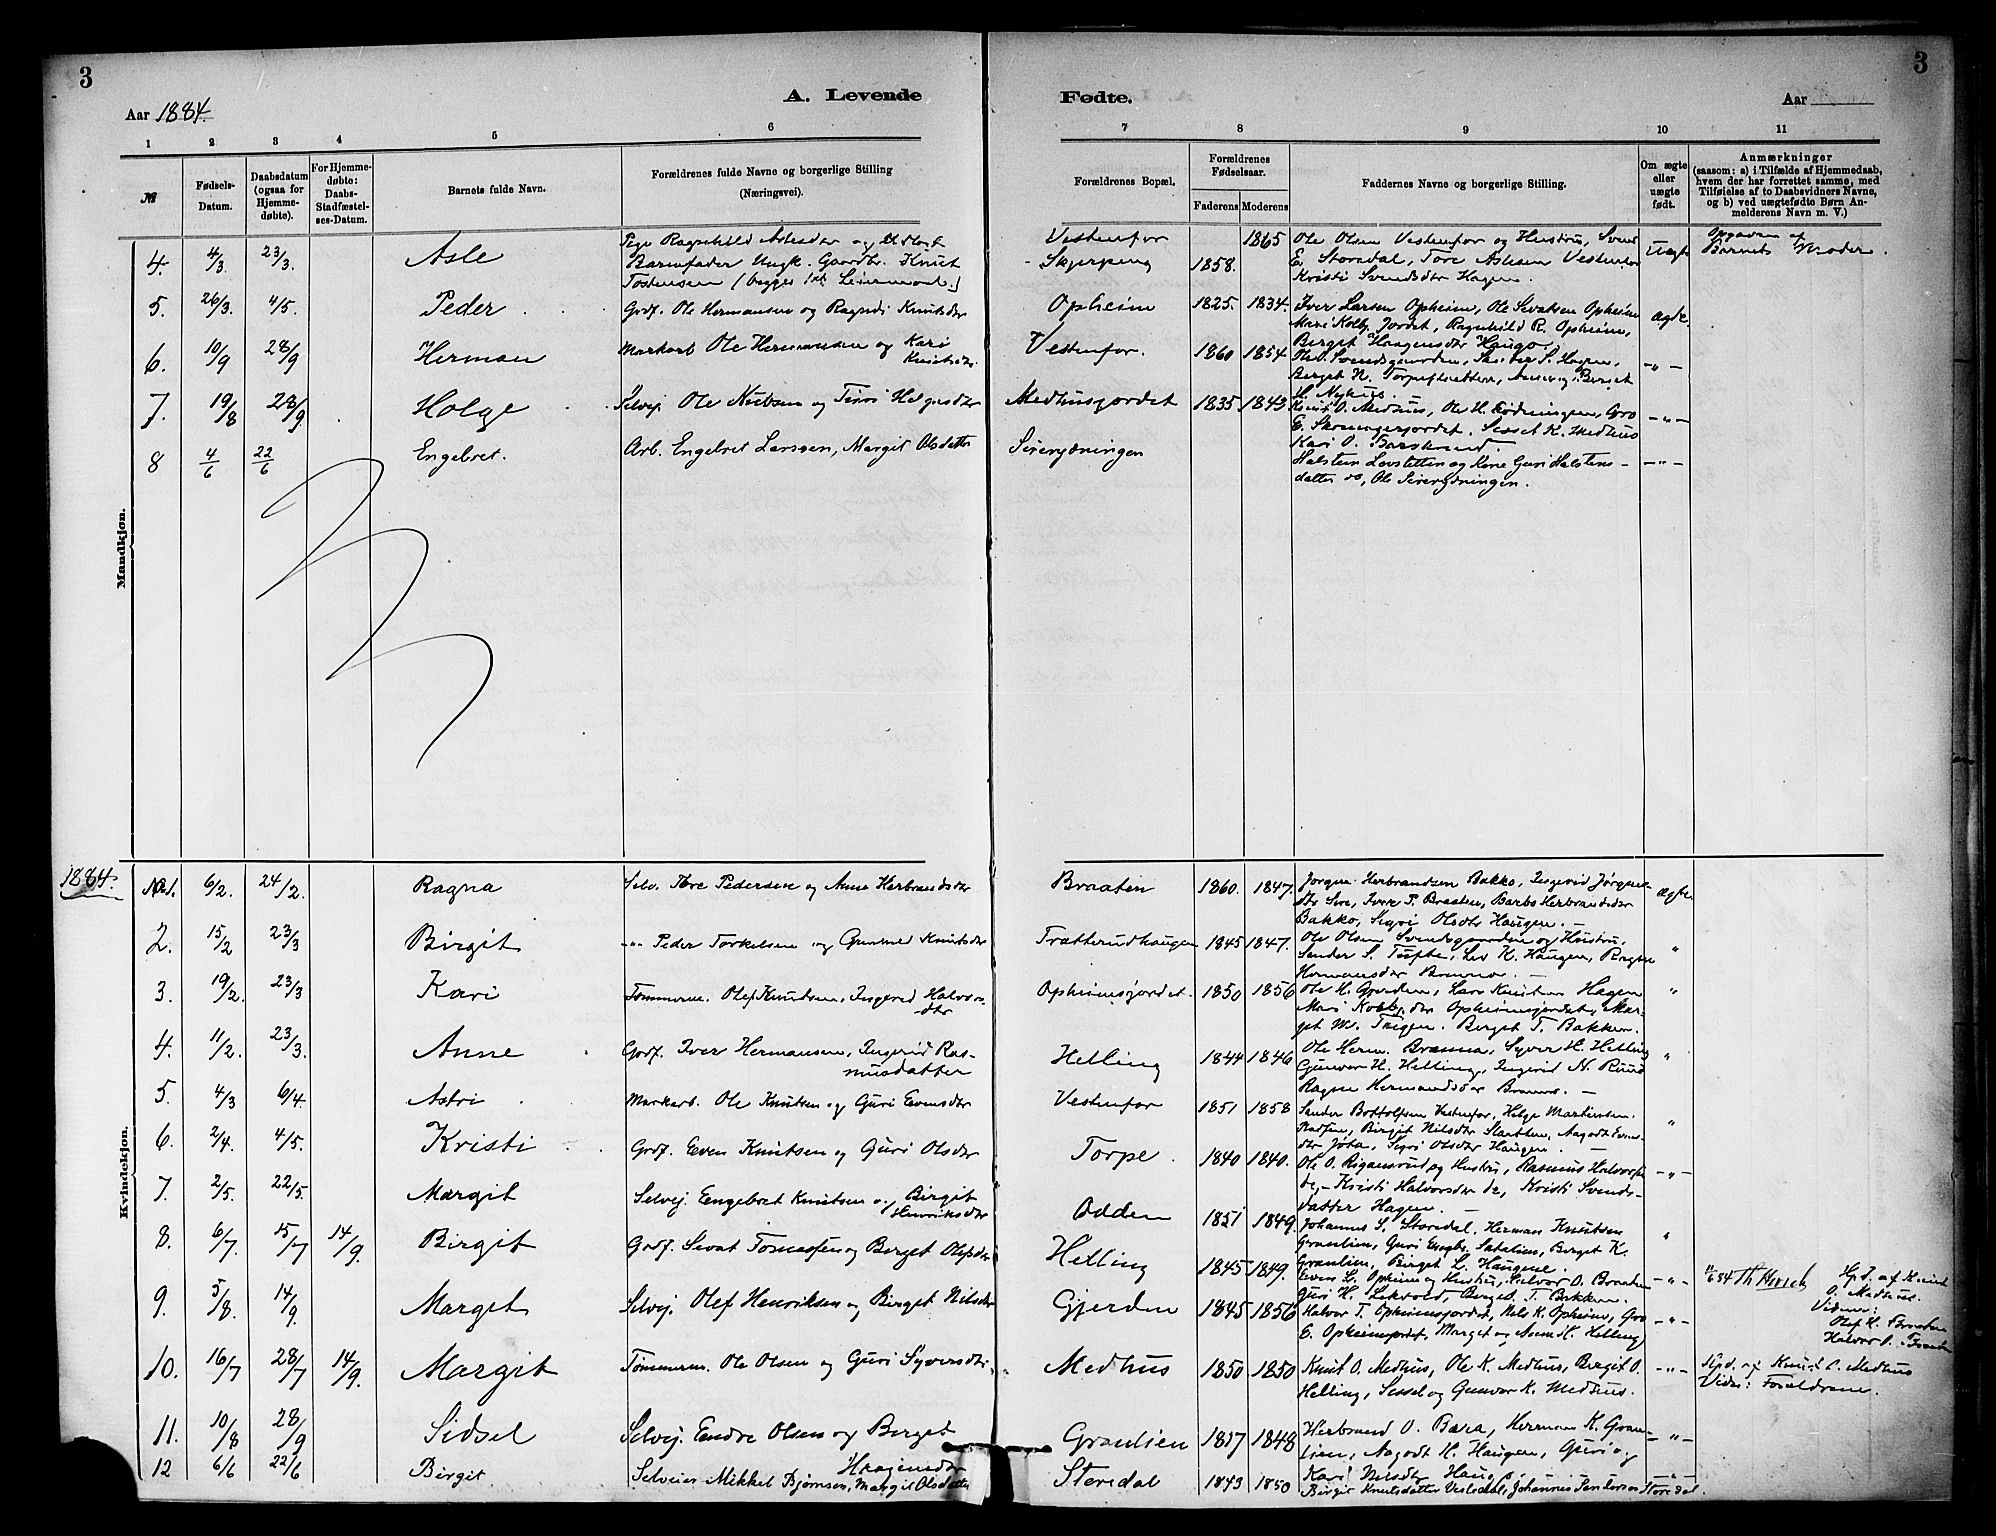 3
3
Aar 1884.
A. Levende
Fødte.
Aar
1 2 3 4 5 6 7 8 9 10 11
№
Fødsels-Datum.
Daabsdatum (ogsaa for Hjemmedøbte).
For Hjemmedøbte: Daabs-Stadfæstelses-Datum.
Barnets fulde Navn.
Forældrenes fulde Navne og borgerlige Stilling (Næringsvei).
Forældrenes Bopæl.
Forældrenes Fødselsaar.
Faderens Moderens
Faddernes Navne og borgerlige Stilling.
Om ægte eller uægte født.
Anmærkninger
(saasom: a) i Tilfælde af Hjemmedaab, hvem der har forrettet samme, med Tilføielse af to Daabsvidners Navne, og b) ved uægtefødte Børn Anmelderens Navn m. V.)
Mandkjøn.
4. 4/3. 23/3. Asle
Pige Ragnhild Aslesdtr og
Barnefader Ungk. Gaardbr. Knut
Tostensen (begges 1ste Leiermaal.)
Vestenfor
Skjerping
1858. 1865
Ole Olsen Vestenfor og Hustru, Svend
E. Storedal, Tore Aslesen Vestenfor
Kristi Svendsdtr Hagen.
Uægte
Opgaven af
Barnets Moder.
5. 26/3. 4/5. Peder
Grdf. Ole Hermansen og Ragndi Knutsdtr
Opheim 1825. 1834.
Iver Larsen Opheim, Ole Sevatsen Opheim
Mari Kolb. Jordet, Ragnhild R. Opheim,
Birget Haagensdtr Haugo.
ægte.
6. 10/9 28/9 Herman
Markarb Ole Hermansen og Kari
Knutsdtr.
Vestenfor. 1860 1854
Olea Svendsgaarden, S. Hagen,
Berget N. Torpesletten, Anne og Berget
H. Myhre.
-„-
7. 19/8 28/9 Holge
Selvej. Ole Nubsen og Helgesdtr
Medhusjordet 1835 1843
Knut O. Medhus, Ole H. Rødningen, Gro
E. Skrinsgerjordet. Sesset K. Medhus
Kari O.
-„-
8 4/6 22/6 Engebret.
Arb. Engebret Larssen, Margit Olsdatter
Sirerydningen
Halstein Lovsletten og Kone Guri Halstens-
datter do, Ole Sirerydningen.
-„-
1884.
Kvindekjøn.
No 1. 6/2. 24/2. Ragna
Selv. Tore Pedersen og Anne Herbrandsdtr
Braaten 1860. 1847.
Jørgen Herbrandsen Bakko, Ingerid Jørgens-
dtr Sire, Iver P. Braaten, Barbo Herbrandsdtr
Bakko, Sigri Olsdtr Haugen.
ægte.
2. 15/2 23/3 Birgit
-„- Peder Torkelsen og Gunnild Knutsdtr
Trætterudhaugen 1845 1847.
Ole Olsen Svendsgaarden og Hustru,
Sander S. Tufte, Liv K. Haugen, Ragne
Hermansdtr Brenno.
„
3. 19/2. 23/3 Kari
Tømmerm. Olef Knudsen, Ingerid Halvors-
dtr
Opheimsjordet. 1850 1856
Ole H. Gjerden, Lars Knutsen Hagen
Mari Kolbj.dtr Opheimsjordet, Mar-
get Berget T. Bakken.
„
4. 11/2. 23/3. Anne
Grdf. Iver Hermansen, Ingerid Ras-
musdatter
Helling 1844 1846
Ole Herm. Brenna, Syver H. Helling
Gunvor H. Helling, Ingerid N. Ruud
Ragne Hermandsdtr Brenno.
„
5. 4/3 6/4. Astri
Markarb. Ole Knutsen og Guri Evensdtr
Vestenfor 1851 1858
Sander Bottolfsen Vestenfor, Helge Martinsen
Birgit Nilsdtr Slaatten, Aagodt Evens-
dtr Jota, Sigri Olsdtr Haugen.
„
6. 2/4. 4/5. Kristi
Grdf. Even Knutsen og Guri Olsdtr
Torpe. 1840 1840.
Ole O. Rigansrud og Hustru, Rasmus Halvorsen
do, - Kristi Halvorsdtr do, Kristi Svends-
datter Hagen.
-„-
7. 2/5. 22/5. Margit
Selvej. Eengebret Knutsen og Birgit
Henriksdtr
Odden 1851 1849.
Johannes S. Storedal, Herman Knutsen
Granlien, Guri Engbr. Satalien, Berget K.
Granlien, Birget L. Haugene.
„
8. 6/7. 15/7 14/9. Birgit
Grdf. Sevat Tomassen og Berget Olefsdtr
Helling 1845 1849.
Even L. Opheim og Hustru, Halvor O. Braaten
Guri H. Lekvold, Berget T. Bakken.
-„-
Hjd. af Knut
O. Medhus.
Vidner:
Olef H. Braaten
Halvor O. Braaten
9. 5/8. 14/9. Marget
Selvej. Olef Henriksen og Birget Nilsdtr
Gjerden 1845 1856
Halvor T. Opheimsjordet, Nils K. Opheim, Gro
E. Opheimsjordet, Marget og Anne K. Helling
-„-
10. 16/7 28/7 14/9. Margit
Tømmerm. Ole Olsen og Guri Syversdtr
Medhus 1850 1850
Knut O. Medhus, Ole K. Medhus, Birgit O.
Helling, Sessel og Gunvor K. Medhus.
-„-
Hjd. af Knut O. Medhus
Vidn: Forældrene.
11. 10/8 28/9 Sidsel
Selvej. Endre Olsen og Berget
Haagensdtr
Granlien 1857 1848
Herbrand O. Bæra, Herman K. Gran-
lien, Aagodt H. Haugen, Guri og
Kari Nilsdtr Haugo.
-„-
12 6/6 22/6 Birgit
Selveier Mikkel Bjørnsen, Margit Olsdatter
Storedal 1843 1850
Birgit Knutsdatter Vesledal, Johannes Storedal.
-„-